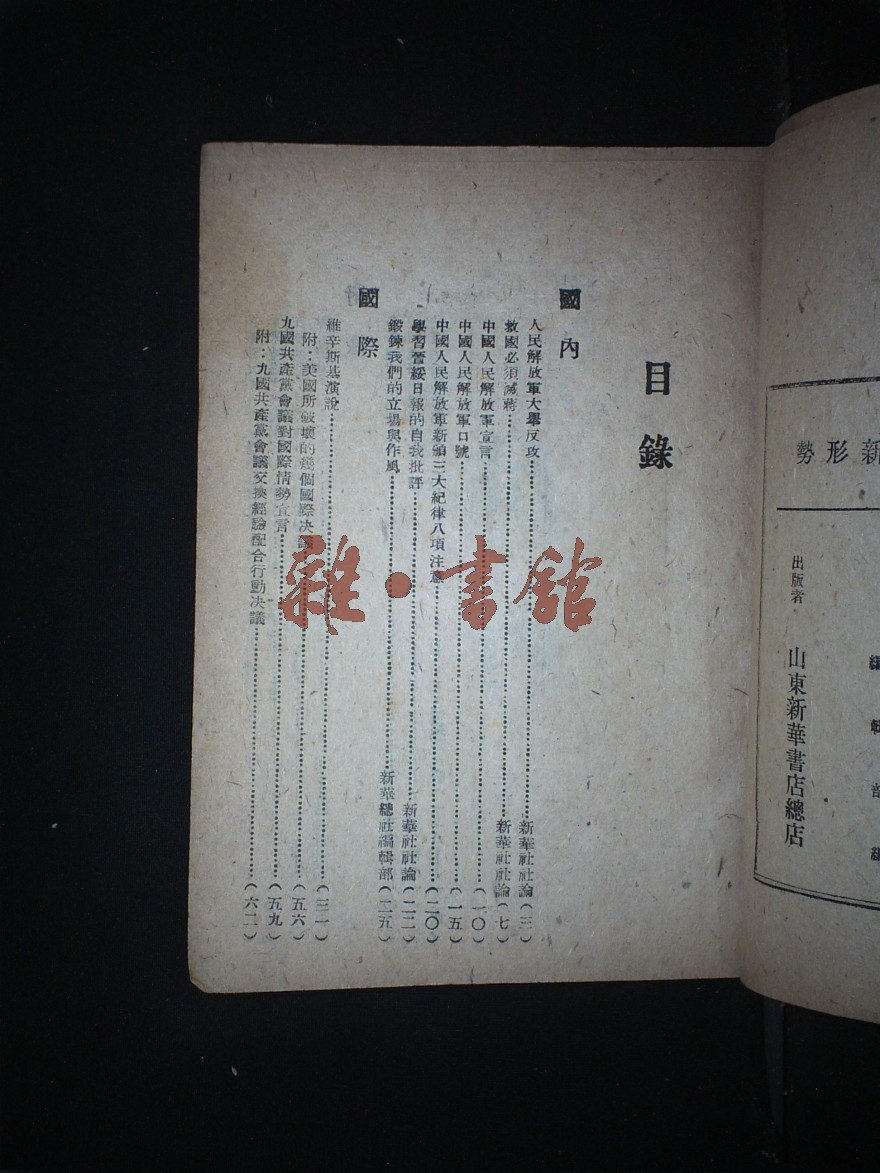 目錄
國內
人民解放軍大舉反攻……新華社社論(三)
救國必須滅蔣……新華社社論(七)
中國人民解放軍宣言……(一〇)
中國人民解放軍口號……(一五)
中國人民解放軍新頒三大紀律八項注意……(二〇)
學習晉綏日報的自我批評……新華社社論(二二)
鍛鍊我們的立場與作風……新華總社編輯部(二五)
國際
維辛斯基演說……(三一)
附：美國所破壞的幾個國際決議……(五六)
九國共產黨會議對國際情勢宣言……(五九)
附：九國共產黨會議交換經驗配合行動決議……(六二)
新形勢
編輯部編
出版者 山東新華書店總店
雜·書館